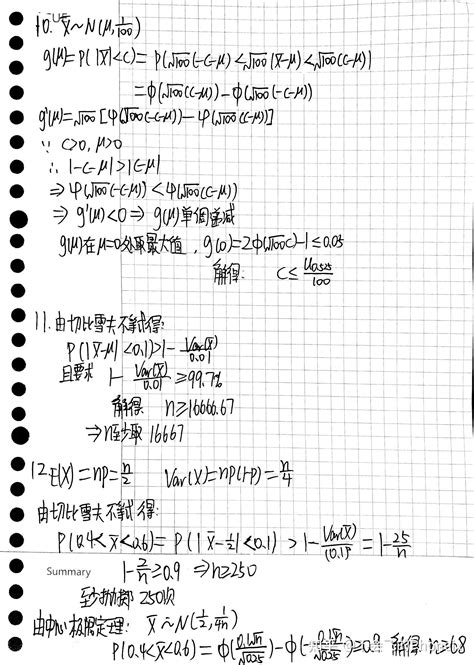 10. X̄~N(μ, 1/100)
g(μ)=P(|X̄|<C)=P(√100(-C-μ)<√100(X̄-μ)<√100(C-μ))
=Φ(√100(C-μ))-Φ(√100(-C-μ))
g'(μ)=√100[φ(√100(-C-μ))-φ(√100(C-μ))]
∵ C>0, μ>0
∴ |-C-μ|>|C-μ|
⇒ φ(√100(-C-μ))<φ(√100(C-μ))
⇒ g'(μ)<0 ⇒ g(μ)单调递减
g(μ)在μ=0处取最大值, g(0)=2Φ(√100C)-1≤0.05
解得: C≤ u0.525/100
11. 由切比雪夫不等式得:
P(|X̄-μ|<0.1)>1- Var(X̄)/0.01
且要求 1- Var(X̄)/0.01 ≥99.7%
解得 n≥16666.67
⇒n至少取 16667
12. E(X)=np=n/2 Var(X)=np(1-p)=n/4
由切比雪夫不等式得:
P(0.4<X̄<0.6)=P(|X̄-1/2|<0.1) >1- Var(X̄)/(0.1)² =1- 25/n
Summary
≥0.9 ⇒n≥250
至少抛掷 250次
由中心极限定理: X̄~N(1/2, 1/4n)
P(0.4<X̄<0.6)=Φ(0.1√n/√0.25)-Φ(-0.1√n/√0.25)≥0.9 解得 n≥68